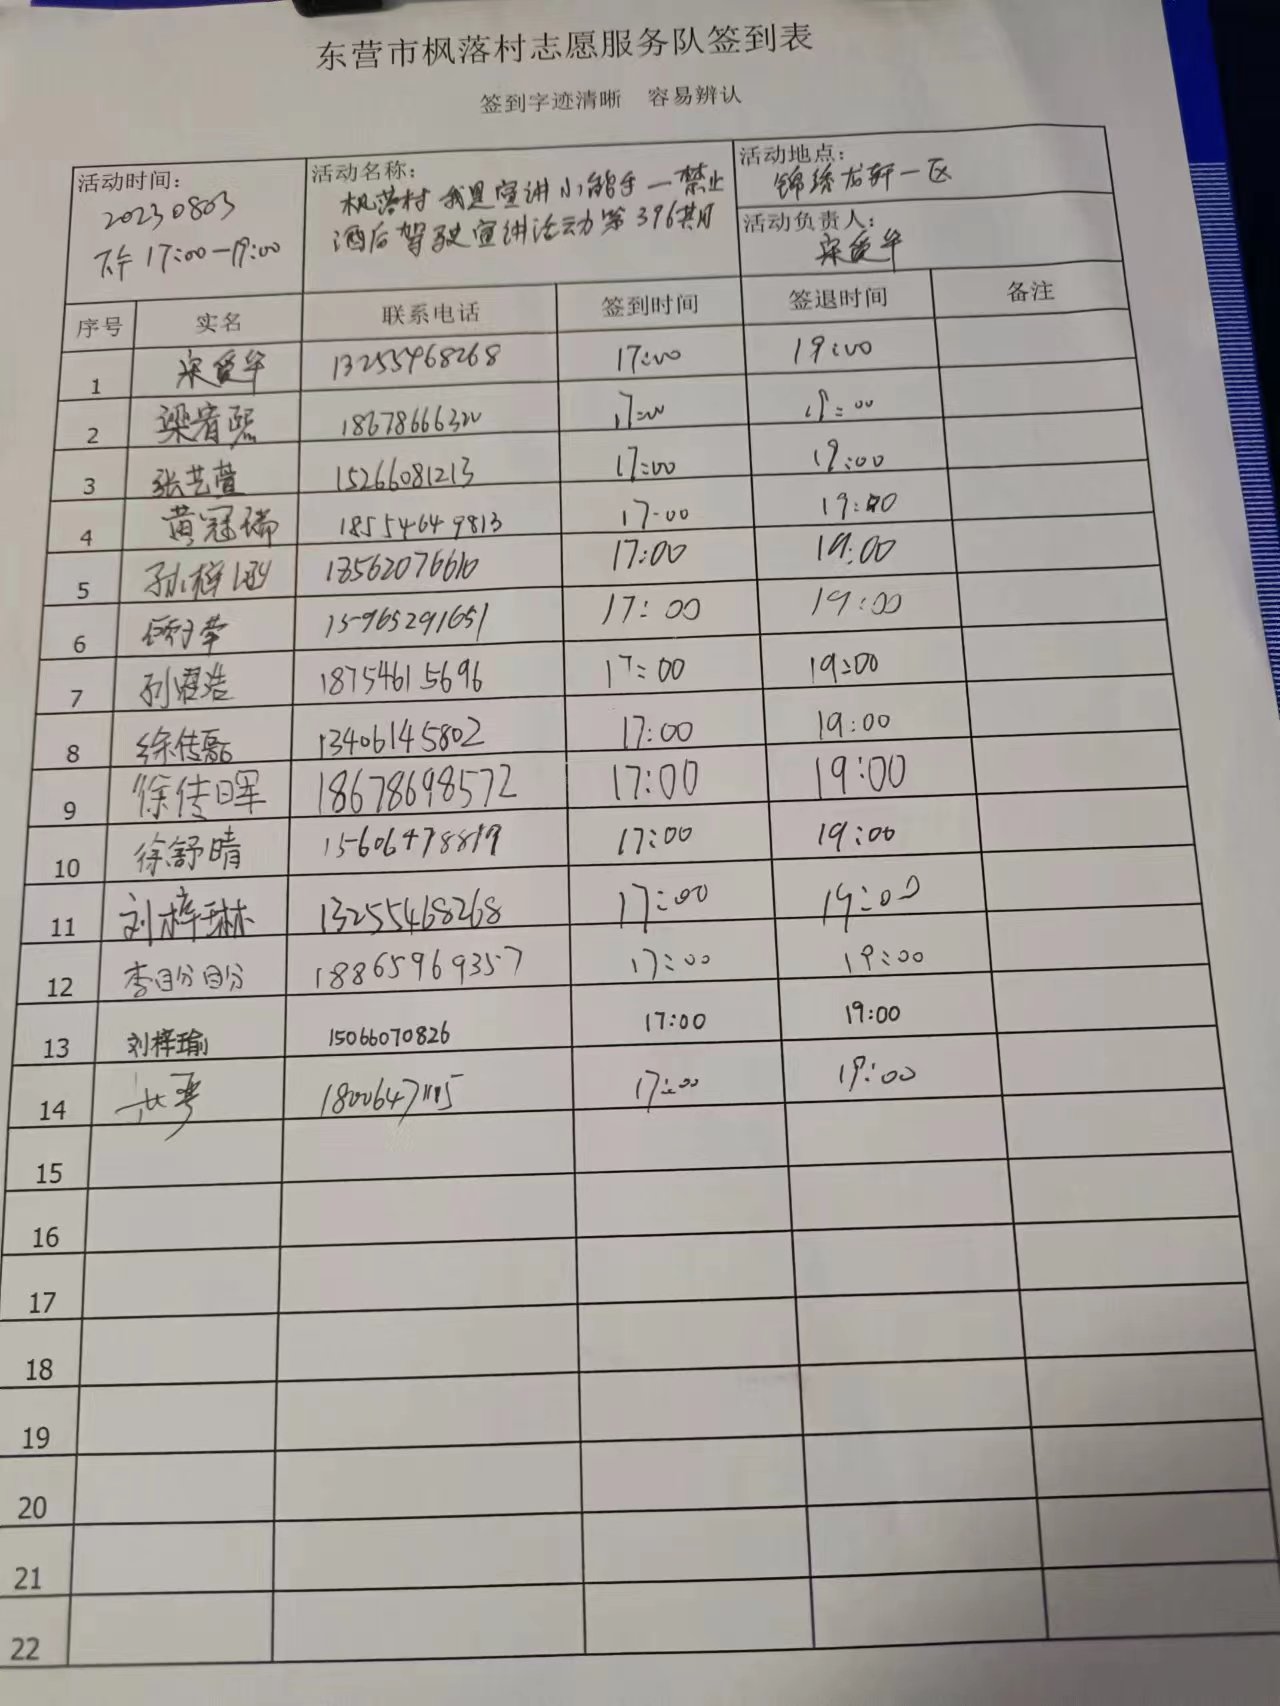 东营市枫落村志愿服务队签到表
签到字迹清晰 容易辨认
活动时间:
20230803
下午 17:00-19:00
活动名称:
枫落村 我是宣讲小能手一禁止
酒后驾驶宣讲活动第396期
活动地点:
锦绣龙轩一区
活动负责人:
宋爱华
序号 实名 联系电话 签到时间 签退时间 备注
1 宋爱华 13255468268 17:00 19:00
2 梁宥熙 18678666320 17:00 19:00
3 张艺萱 15266081213 17:00 19:00
4 黄冠瑞 18554649813 17:00 19:00
5 孙梓 18562076610 17:00 19:00
6 15965291651 17:00 19:00
7 孙浩 18754615696 17:00 19:00
8 徐传 13406145802 17:00 19:00
9 徐传晖 18678698572 17:00 19:00
10 徐舒晴 15606478819 17:00 19:00
11 刘梓琳 13255468268 17:00 19:00
12 李盼盼 18865969357 17:00 19:00
13 刘梓瑜 15066070826 17:00 19:00
14 17:00 19:00
15
16
17
18
19
20
21
22